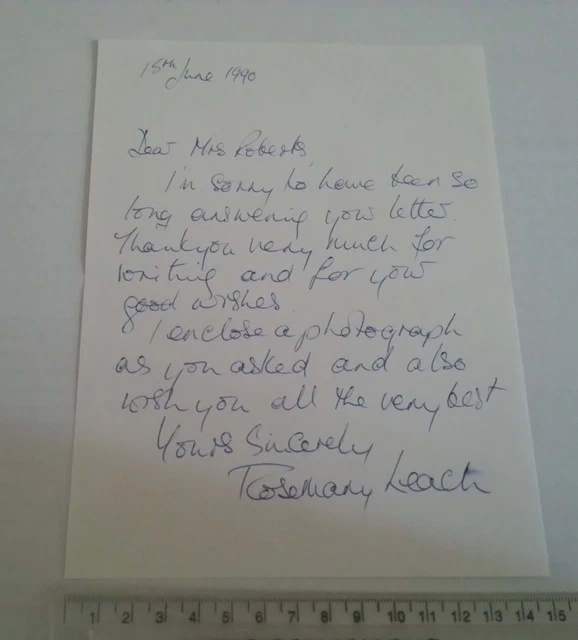 15th June 1990
Dear Mrs Roberts
I'm sorry to have been so
long answering your letter.
Thankyou very much for
writing and for your
good wishes
I enclose a photograph
as you asked and also
wish you all the very best
Yours Sincerely
Rosemary Leach
1 2 3 4 5 6 7 8 9 10 11 12 13 14 15